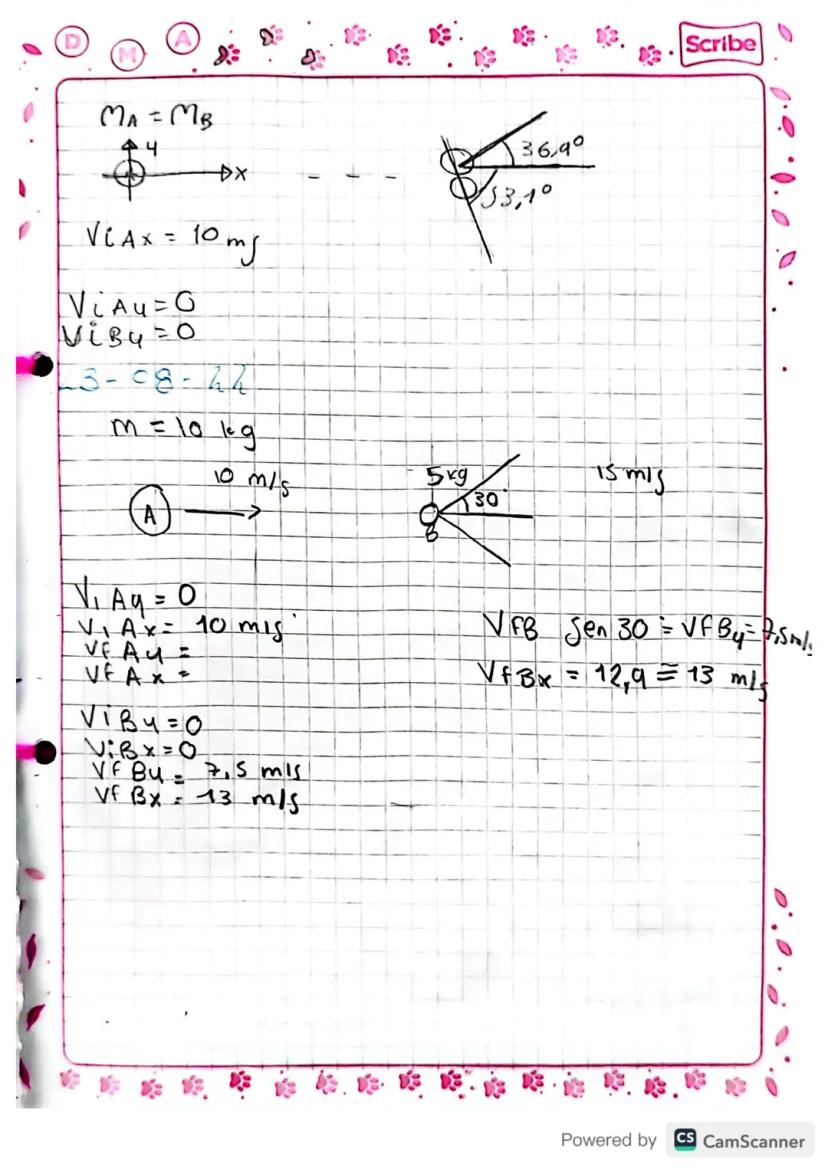 D M A
Scribe
MA = MB
y
x
- - -
36,9°
53,1°
ViAx = 10 m/s
ViAy = 0
ViBy = 0
m = 10 kg
10 m/s
A
5 kg
30°
B
15 m/s
ViAy = 0
ViAx = 10 m/s
VfAy =
VfAx =
VfB Sen 30 = VfBy = 7,5 m/s
VfBx = 12,9 ≅ 13 m/s
ViBy = 0
ViBx = 0
VfBy = 7,5 m/s
VfBx = 13 m/s
Powered by CS CamScanner